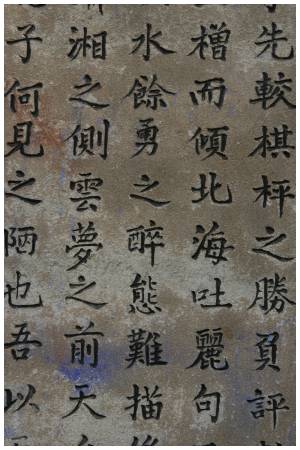 先較棋枰之勝負評
樽而傾北海吐麗句
水餘勇之醉態難描
湘之側雲夢之前天
子何見之陋也吾以